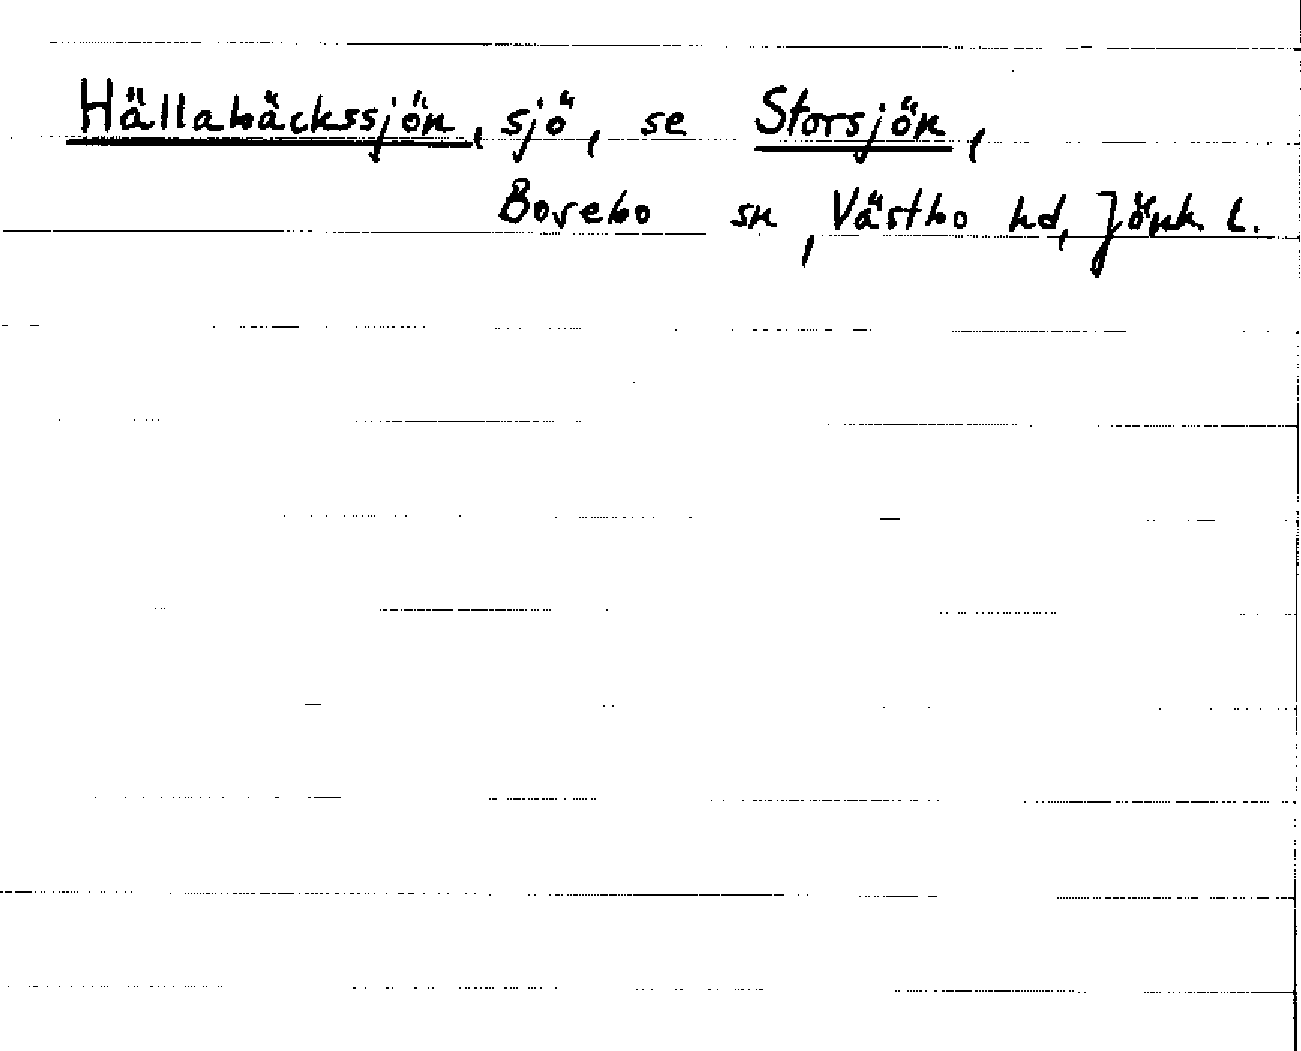 Hällabäckssjön, sjö, se Storsjön,
Bosebo sn, Västbo hd, Jönk L.